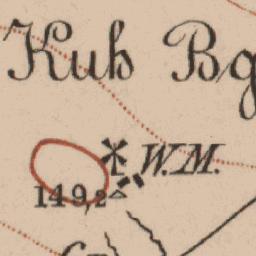 Kuh Bg
W.M.
149,2